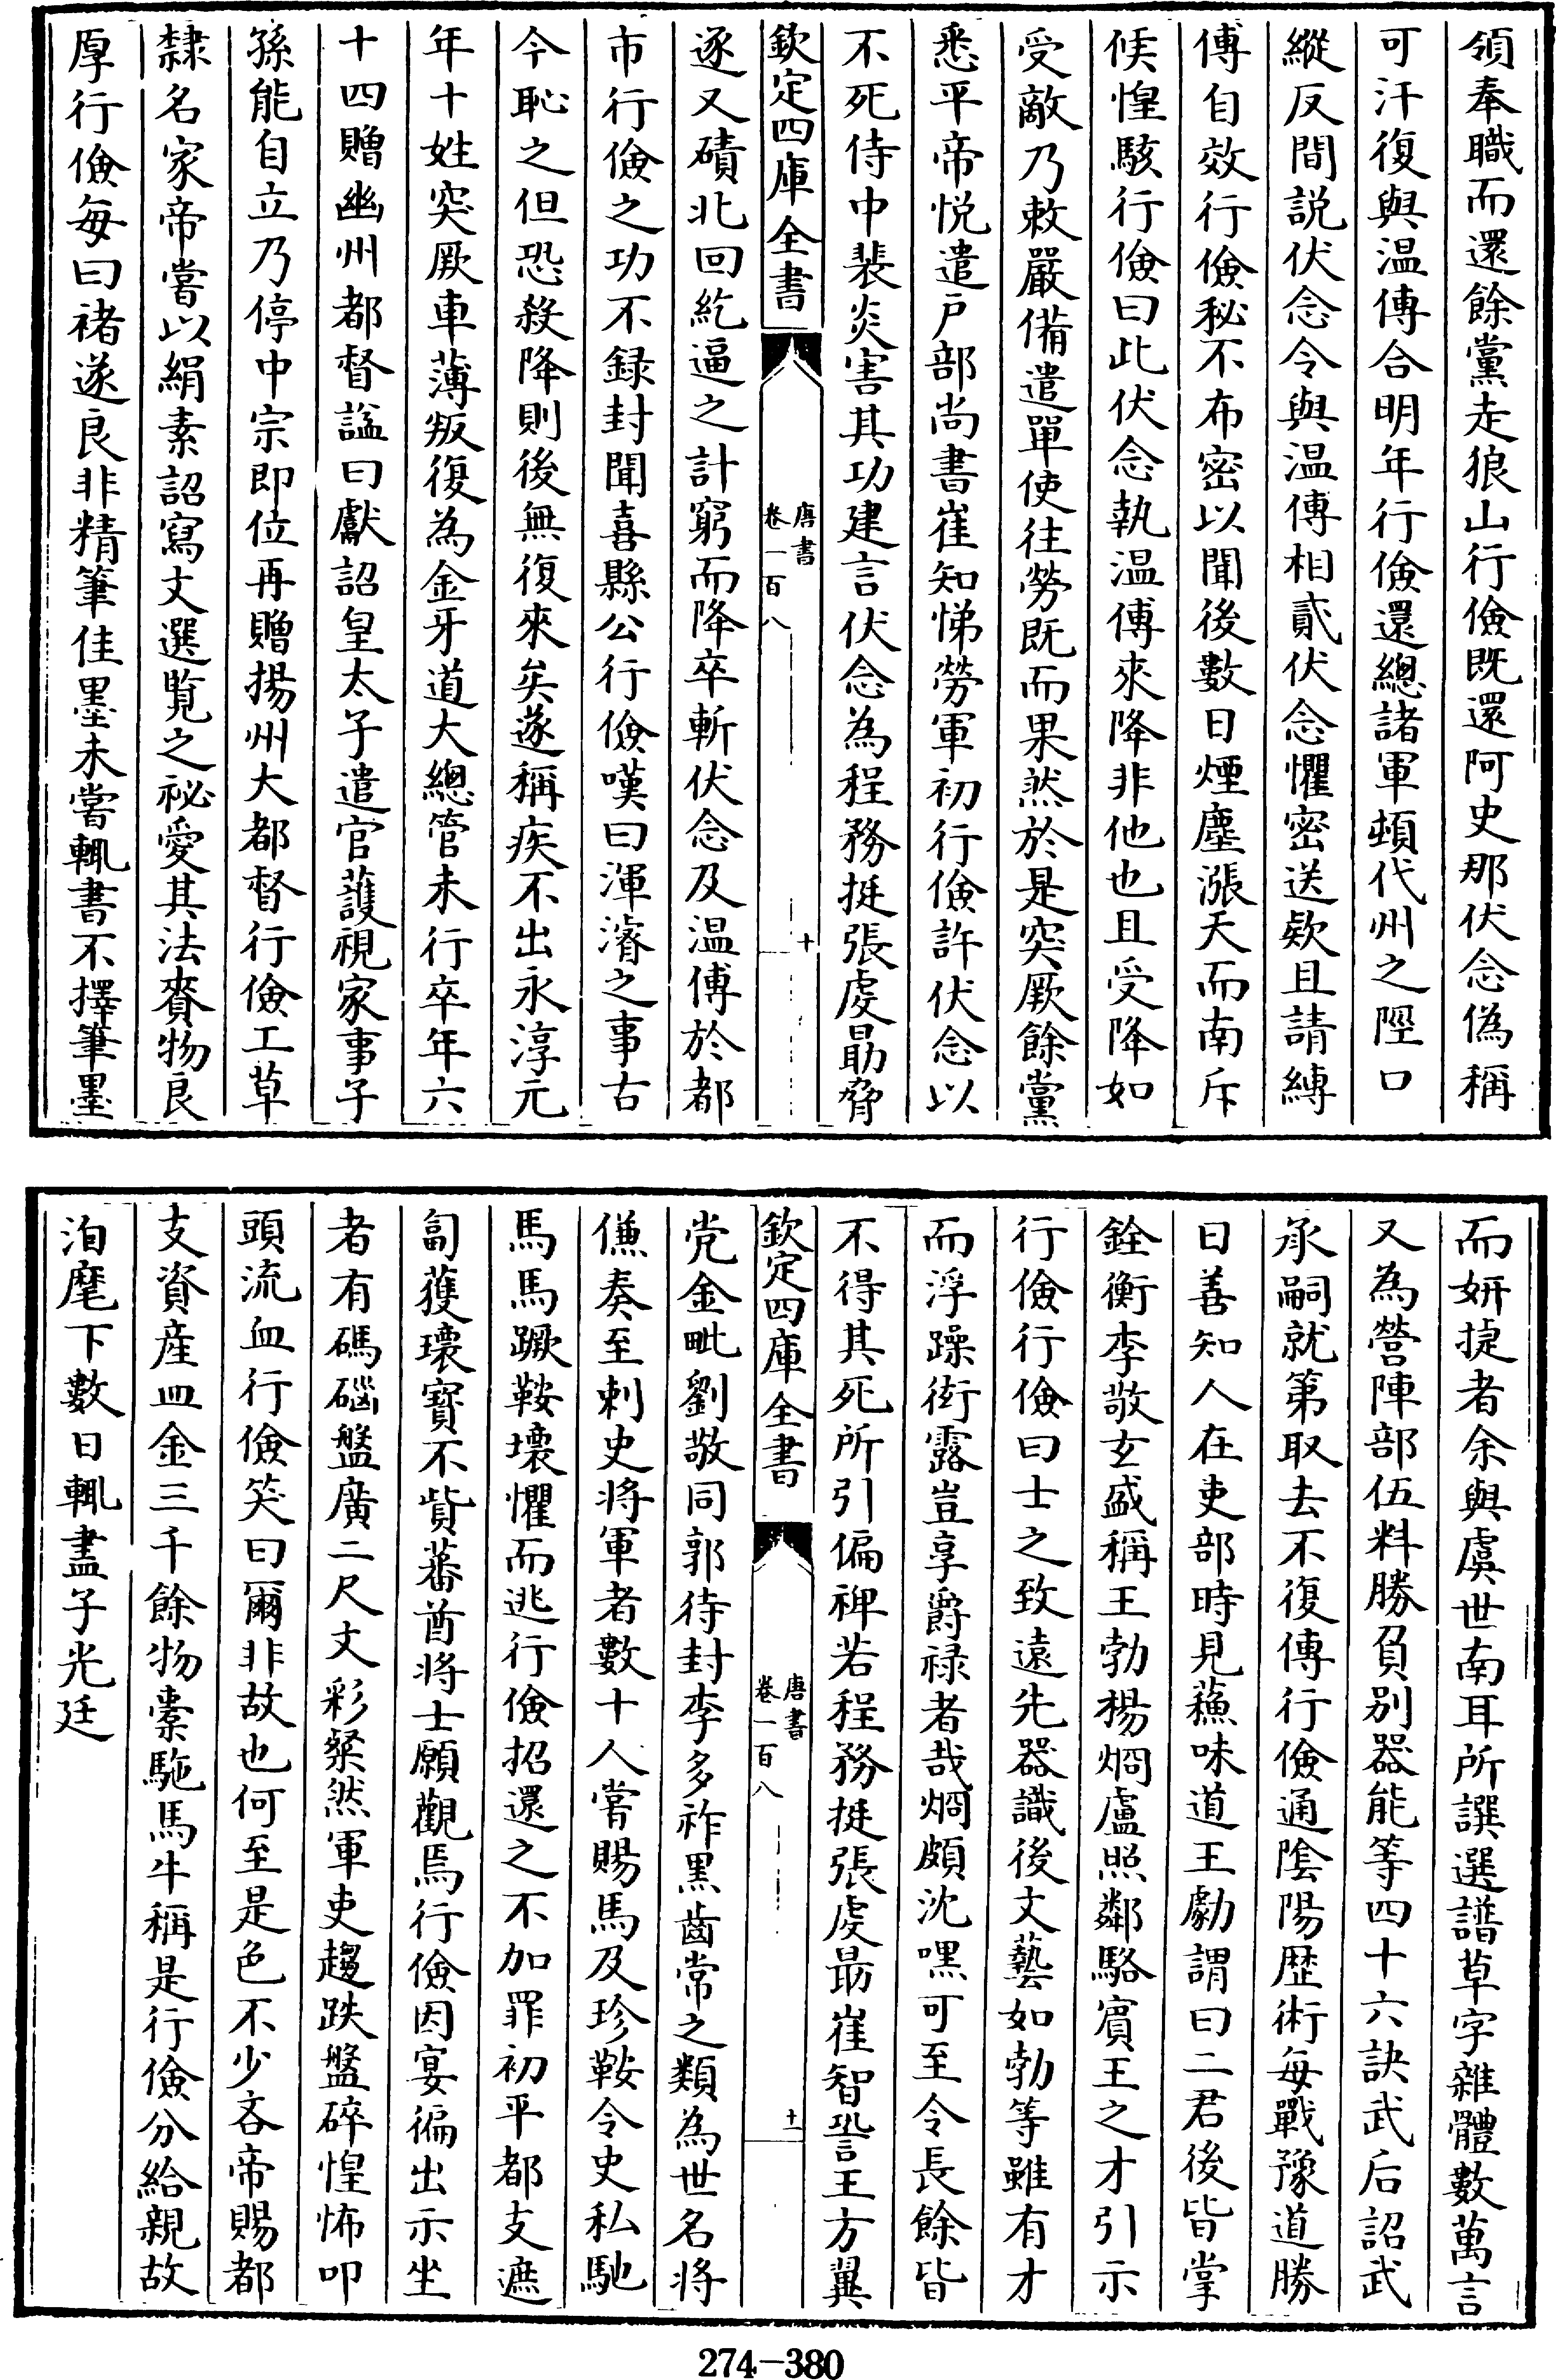 領奉職而還餘黨走狼山行儉既還阿史那伏念偽稱
可汗復與温傅合明年行儉還總諸軍頓代州之陘口
縱反間説伏念令與温傅相貳伏念懼密送欵且請縛
傅自效行儉秘不布密以聞後數日煙塵漲天而南斥
候惶駭行儉曰此伏念執温傅來降非他也且受降如
受敵乃敕嚴備遣單使往勞既而果然於是突厥餘黨
悉平帝悦遣戶部尚書崔知悌勞軍初行儉許伏念以
不死侍中裴炎害其功建言伏念為程務挺張虔勗脅
欽定四庫全書
唐書
卷一百八
十
逐又磧北回紇逼之計窮而降卒斬伏念及温傅於都
市行儉之功不錄封聞喜縣公行儉嘆曰渾濬之事古
今恥之但恐殺降則後無復來矣遂稱疾不出永淳元
年十姓突厥車薄叛復為金牙道大總管未行卒年六
十四贈幽州都督諡曰獻詔皇太子遣官護視家事子
孫能自立乃停中宗即位再贈揚州大都督行儉工草
隸名家帝嘗以絹素詔寫文選覽之祕愛其法賚物良
厚行儉每曰褚遂良非精筆佳墨未嘗輒書不擇筆墨
而妍捷者余與虞世南耳所譔選譜草字雜體數萬言
又為營陣部伍料勝負别器能等四十六訣武后詔武
承嗣就第取去不復傳行儉通陰陽歴術每戰豫道勝
日善知人在吏部時見蘓味道王勮謂曰二君後皆掌
銓衡李敬玄盛稱王勃楊烱盧照鄰駱賓王之才引示
行儉行儉曰士之致遠先器識後文藝如勃等雖有才
而浮躁衒露豈享爵禄者哉烱頗沈嘿可至令長餘皆
不得其死所引偏禆若程務挺張虔勗崔智䛒王方翼
欽定四庫全書
唐書
卷一百八
十一
党金毗劉敬同郭待封李多祚黑齒常之類為世名將
傔奏至刺史將軍者數十人嘗賜馬及珍鞍令史私馳
馬馬蹶鞍壞懼而逃行儉招還之不加罪初平都支遮
匐獲瓌寶不貲蕃酋將士願觀焉行儉因宴徧出示坐
者有碼碯盤廣二尺文彩粲然軍吏趨跌盤碎惶怖叩
頭流血行儉笑曰爾非故也何至是色不少吝帝賜都
支資産皿金三千餘物橐駞馬牛稱是行儉分給親故
洎麾下數日輒盡子光廷
274-380